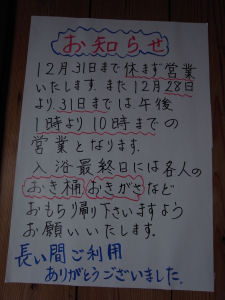 お知らせ
12月31日まで休まず営業
いたします。また12月28日
より31日までは午後
1時より10時までの
営業となります。
入浴最終日には各人の
おき桶、おきがさなど
おもち帰り下さいますよう
お願いいたします。
長い間ご利用
ありがとうございました。